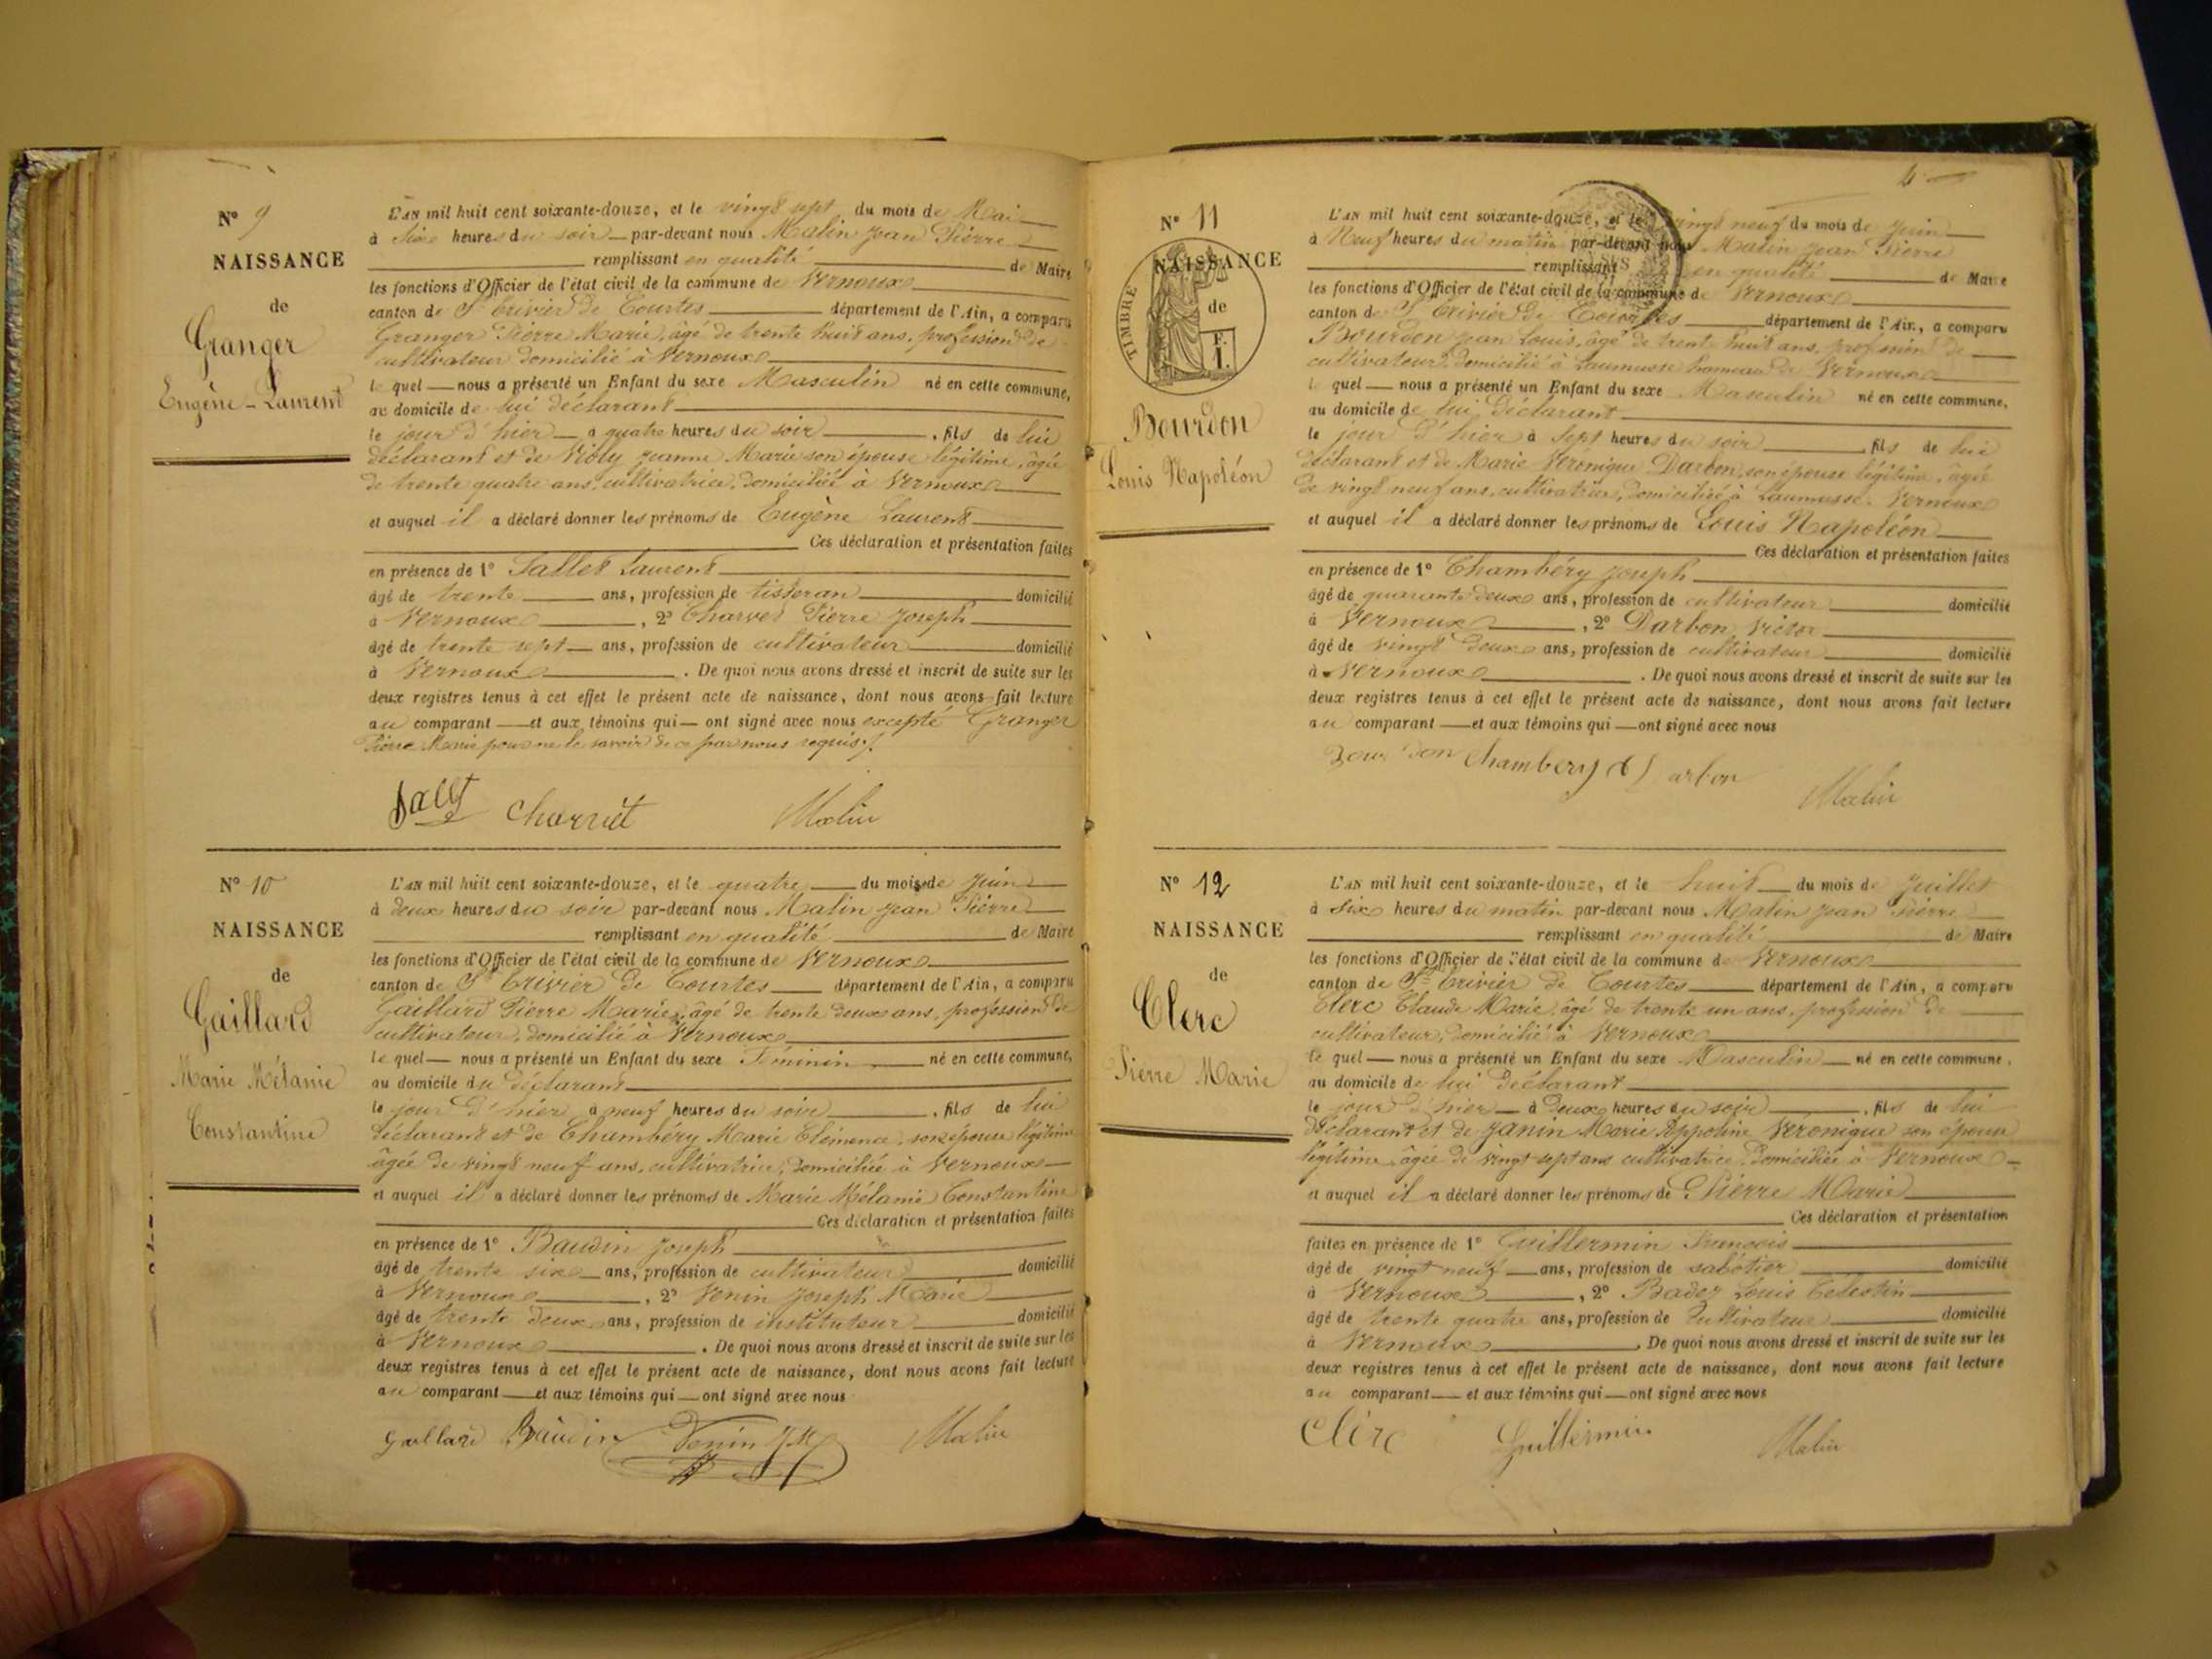 N° 9
NAISSANCE
de
Granger
Eugène-Laurent
L'AN mil huit cent soixante-douze, et le vingt sept du mois de Mai
à Six heures du soir par-devant nous Malin Jean Pierre
remplissant en qualité de Maire
les fonctions d'Officier de l'état civil de la commune de Vernoux
canton de St Trivier de Courtes département de l'Ain, a comparu
Granger Pierre Marie, âgé de trente huit ans, profession de
cultivateur domicilié à Vernoux
le quel nous a présenté un Enfant du sexe Masculin né en cette commune,
au domicile de lui déclarant
le jour d'hier à quatre heures du soir, fils de lui
déclarant et de Violy Jeanne Marie son épouse légitime, âgée
de trente quatre ans, cultivatrice, domiciliée à Vernoux
et auquel il a déclaré donner les prénoms de Eugène Laurent
Ces déclaration et présentation faites
en présence de 1° Sallet Laurent
âgé de trente ans, profession de tisseran domicilié
à Vernoux, 2° Charvet Pierre Joseph
âgé de trente sept ans, profession de cultivateur domicilié
à Vernoux. De quoi nous avons dressé et inscrit de suite sur les
deux registres tenus à cet effet le présent acte de naissance, dont nous avons fait lecture
au comparant et aux témoins qui ont signé avec nous excepté Granger
Pierre Marie pour ne le savoir de ce par nous requis.
Sallet Charvet Malin
N° 10
NAISSANCE
de
Gaillard
Marie Mélanie
Constantine
L'AN mil huit cent soixante-douze, et le quatre du mois de Juin
à deux heures du soir par-devant nous Malin Jean Pierre
remplissant en qualité de Maire
les fonctions d'Officier de l'état civil de la commune de Vernoux
canton de St Trivier de Courtes département de l'Ain, a comparu
Gaillard Pierre Marie, âgé de trente deux ans, profession de
cultivateur, domicilié à Vernoux
le quel nous a présenté un Enfant du sexe Féminin né en cette commune,
au domicile du déclarant
le jour d'hier à neuf heures du soir, fils de lui
déclarant et de Chambéry Marie Clémence, son épouse légitime
âgée de vingt neuf ans, cultivatrice, domiciliée à Vernoux
et auquel il a déclaré donner les prénoms de Marie Mélanie Constantine
Ces déclaration et présentation faites
en présence de 1° Baudin Joseph
âgé de trente six ans, profession de cultivateur domicilié
à Vernoux, 2° Venin Joseph Marie
âgé de trente deux ans, profession de instituteur domicilié
à Vernoux. De quoi nous avons dressé et inscrit de suite sur les
deux registres tenus à cet effet le présent acte de naissance, dont nous avons fait lecture
au comparant et aux témoins qui ont signé avec nous
Gaillard Baudin Venin J M Malin
4
N° 11
NAISSANCE
de
TIMBRE
F.
1.
Bourdon
Louis Napoléon
L'AN mil huit cent soixante-douze, et le vingt neuf du mois de Juin
à Neuf heures du matin par-devant nous Malin Jean Pierre
remplissant en qualité de Maire
les fonctions d'Officier de l'état civil de la commune de Vernoux
canton de St Trivier de Courtes département de l'Ain, a comparu
Bourdon Jean Louis, âgé de trente huit ans, profession de
cultivateur, domicilié à Laumusse hameau de Vernoux
le quel nous a présenté un Enfant du sexe Masculin né en cette commune,
au domicile de lui déclarant
le jour d'hier à Sept heures du soir, fils de lui
déclarant et de Marie Véronique Darbon, son épouse légitime, âgée
de vingt neuf ans, cultivatrice, domiciliée à Laumusse. Vernoux
et auquel il a déclaré donner les prénoms de Louis Napoléon
Ces déclaration et présentation faites
en présence de 1° Chambéry Joseph
âgé de quarante deux ans, profession de cultivateur domicilié
à Vernoux, 2° Darbon Victor
âgé de vingt deux ans, profession de cultivateur domicilié
à Vernoux. De quoi nous avons dressé et inscrit de suite sur les
deux registres tenus à cet effet le présent acte de naissance, dont nous avons fait lecture
au comparant et aux témoins qui ont signé avec nous
Bourdon Chambery Darbon
Malin
N° 12
NAISSANCE
de
Clerc
Pierre Marie
L'AN mil huit cent soixante-douze, et le huit du mois de Juillet
à Six heures du matin par-devant nous Malin Jean Pierre
remplissant en qualité de Maire
les fonctions d'Officier de l'état civil de la commune de Vernoux
canton de St Trivier de Courtes département de l'Ain, a comparu
Clerc Claude Marie, âgé de trente un ans, profession de
cultivateur, domicilié à Vernoux
le quel nous a présenté un Enfant du sexe Masculin né en cette commune,
au domicile de lui déclarant
le jour d'hier à Deux heures du soir, fils de lui
déclarant et de Janin Marie Appoline Véronique son épouse
légitime, âgée de vingt sept ans cultivatrice, domiciliée à Vernoux
et auquel il a déclaré donner les prénoms de Pierre Marie
Ces déclaration et présentation
faites en présence de 1° Guillermin François
âgé de vingt neuf ans, profession de sabotier domicilié
à Vernoux, 2° Badez Louis Celestin
âgé de trente quatre ans, profession de Cultivateur domicilié
à Vernoux. De quoi nous avons dressé et inscrit de suite sur les
deux registres tenus à cet effet le présent acte de naissance, dont nous avons fait lecture
au comparant et aux témoins qui ont signé avec nous
Clerc Guillermin Malin